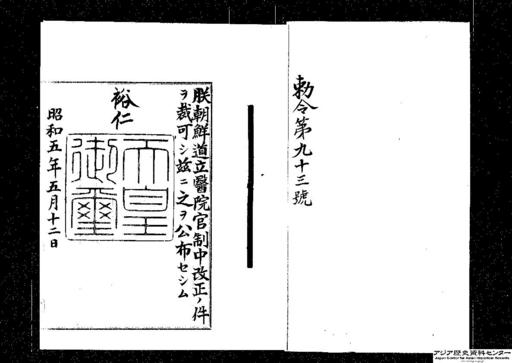 勅令第九十三號
朕朝鮮道立醫院官制中改正ノ件
ヲ裁可シ茲ニ之ヲ公布セシム
裕仁
天皇
御璽
昭和五年五月十二日
アジア歴史資料センター
Japan Center for Asian Historical Records